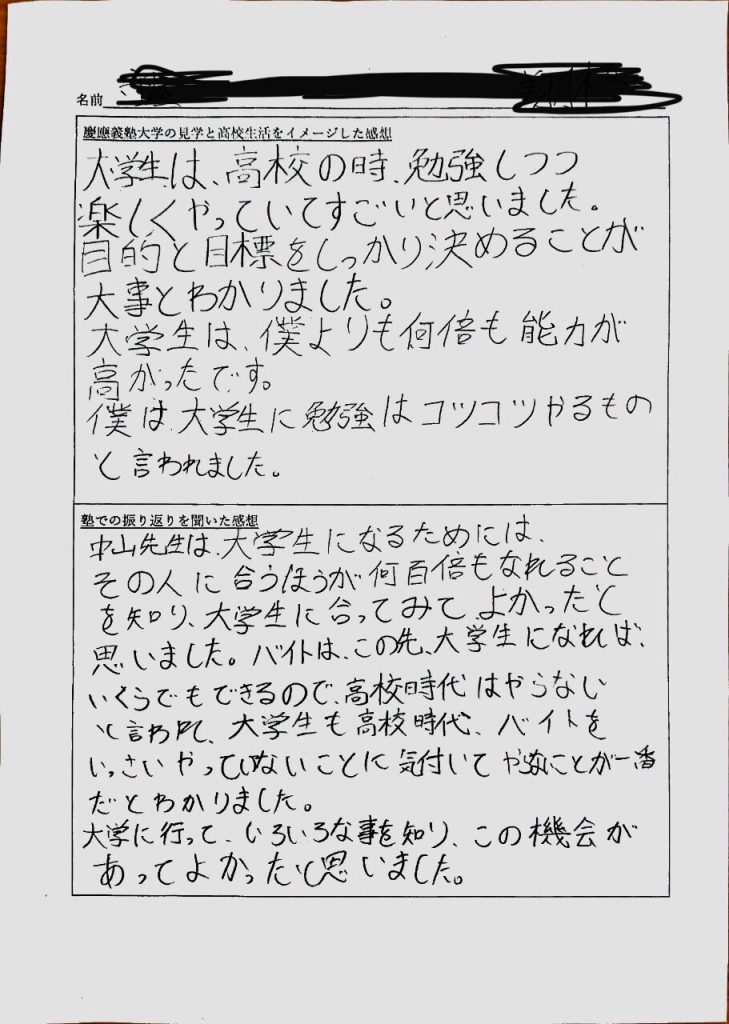 名前
慶應義塾大学の見学と高校生活をイメージした感想
大学生は、高校の時、勉強しつつ
楽しくやっていてすごいと思いました。
目的と目標をしっかり決めることが
大事とわかりました。
大学生は、僕よりも何倍も能力が
高かったです。
僕は、大学生に勉強はコツコツやるもの
と言われました。
塾での振り返りを聞いた感想
中山先生は、大学生になるためには、
その人に合うほうが何百倍もなれること
を知り、大学生に合ってみてよかったと
思いました。バイトは、この先、大学生になれば、
いくらでもできるので、高校時代はやらない
と言われて、大学生も高校時代、バイトを
いっさいやっていないことに気付いて ことが一番
だとわかりました。
大学に行って、いろいろな事を知り、この機会が
あってよかったと思いました。